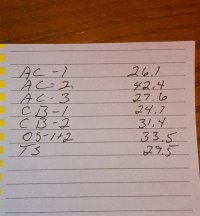 AC-1 26.1
AC-2 42.4
AC-3 27.6
CB-1 24.7
CB-2 31.4
OS-1+2 33.5
TS 27.5